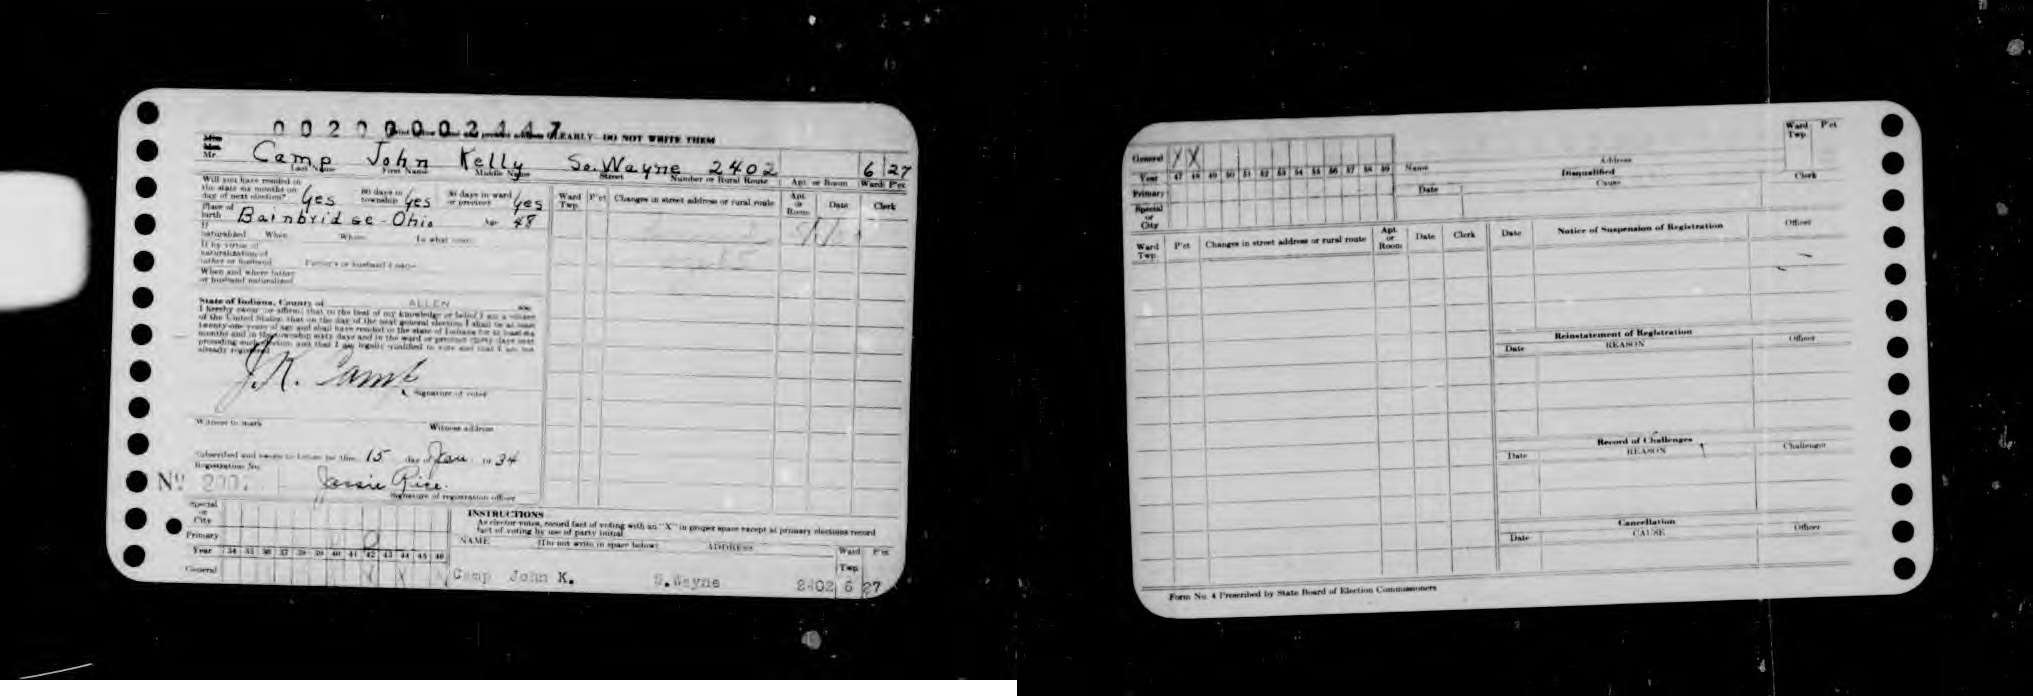 00200002447
CLEARLY - DO NOT WRITE THEM
Miss
Mrs.
Mr. Camp John Kelly So. Wayne 2402 6 27
Last Name First Name Middle Name Street Number or Rural Route Apt. or Room Ward P'ct
Will you have resided in
the state six months on
day of next election? Yes 60 days in township Yes 30 days in ward or precinct Yes
Place of birth Bainbridge - Ohio Age 48
If naturalized When Where To what court
If by virtue of
naturalization of
father or husband Father's or husband's name
When and where father
or husband naturalized
Ward Twp. P'ct Changes in street address or rural route Apt. or Room Date Clerk
State of Indiana, County of ALLEN
I hereby swear (or affirm) that to the best of my knowledge or belief I am a citizen
of the United States; that on the day of the next general election I shall be at least
twenty-one years of age and shall have resided in the state of Indiana for at least six
months and in the township sixty days and in the ward or precinct thirty days next
preceding such election and that I am legally qualified to vote and that I am not
already registered
J. K. Camp
Signature of voter
Witness to mark Witness address
Subscribed and sworn to before me this 15 day of Jan 1934
Registration No.
No
Jessie Rice.
Signature of registration officer
Special or City
Primary
Year 34 35 36 37 38 39 40 41 42 43 44 45 46
General
INSTRUCTIONS
As elector votes, record fact of voting with an "X" in proper space except at primary elections record
fact of voting by use of party initial
NAME (Do not write in space below) ADDRESS Ward Twp. P'ct
Camp John K. S.Wayne 2402 6 27
General X X
Year 47 48 49 50 51 52 53 54 55 56 57 58 59
Primary
Special or City
Name Address Ward Twp. P'ct
Disqualified
Date Cause Clerk
Ward Twp. P'ct Changes in street address or rural route Apt. or Room Date Clerk
Date Notice of Suspension of Registration Officer
Reinstatement of Registration
Date REASON Officer
Record of Challenges
Date REASON Challenger
Cancellation
Date CAUSE Officer
Form No. 4 Prescribed by State Board of Election Commissioners